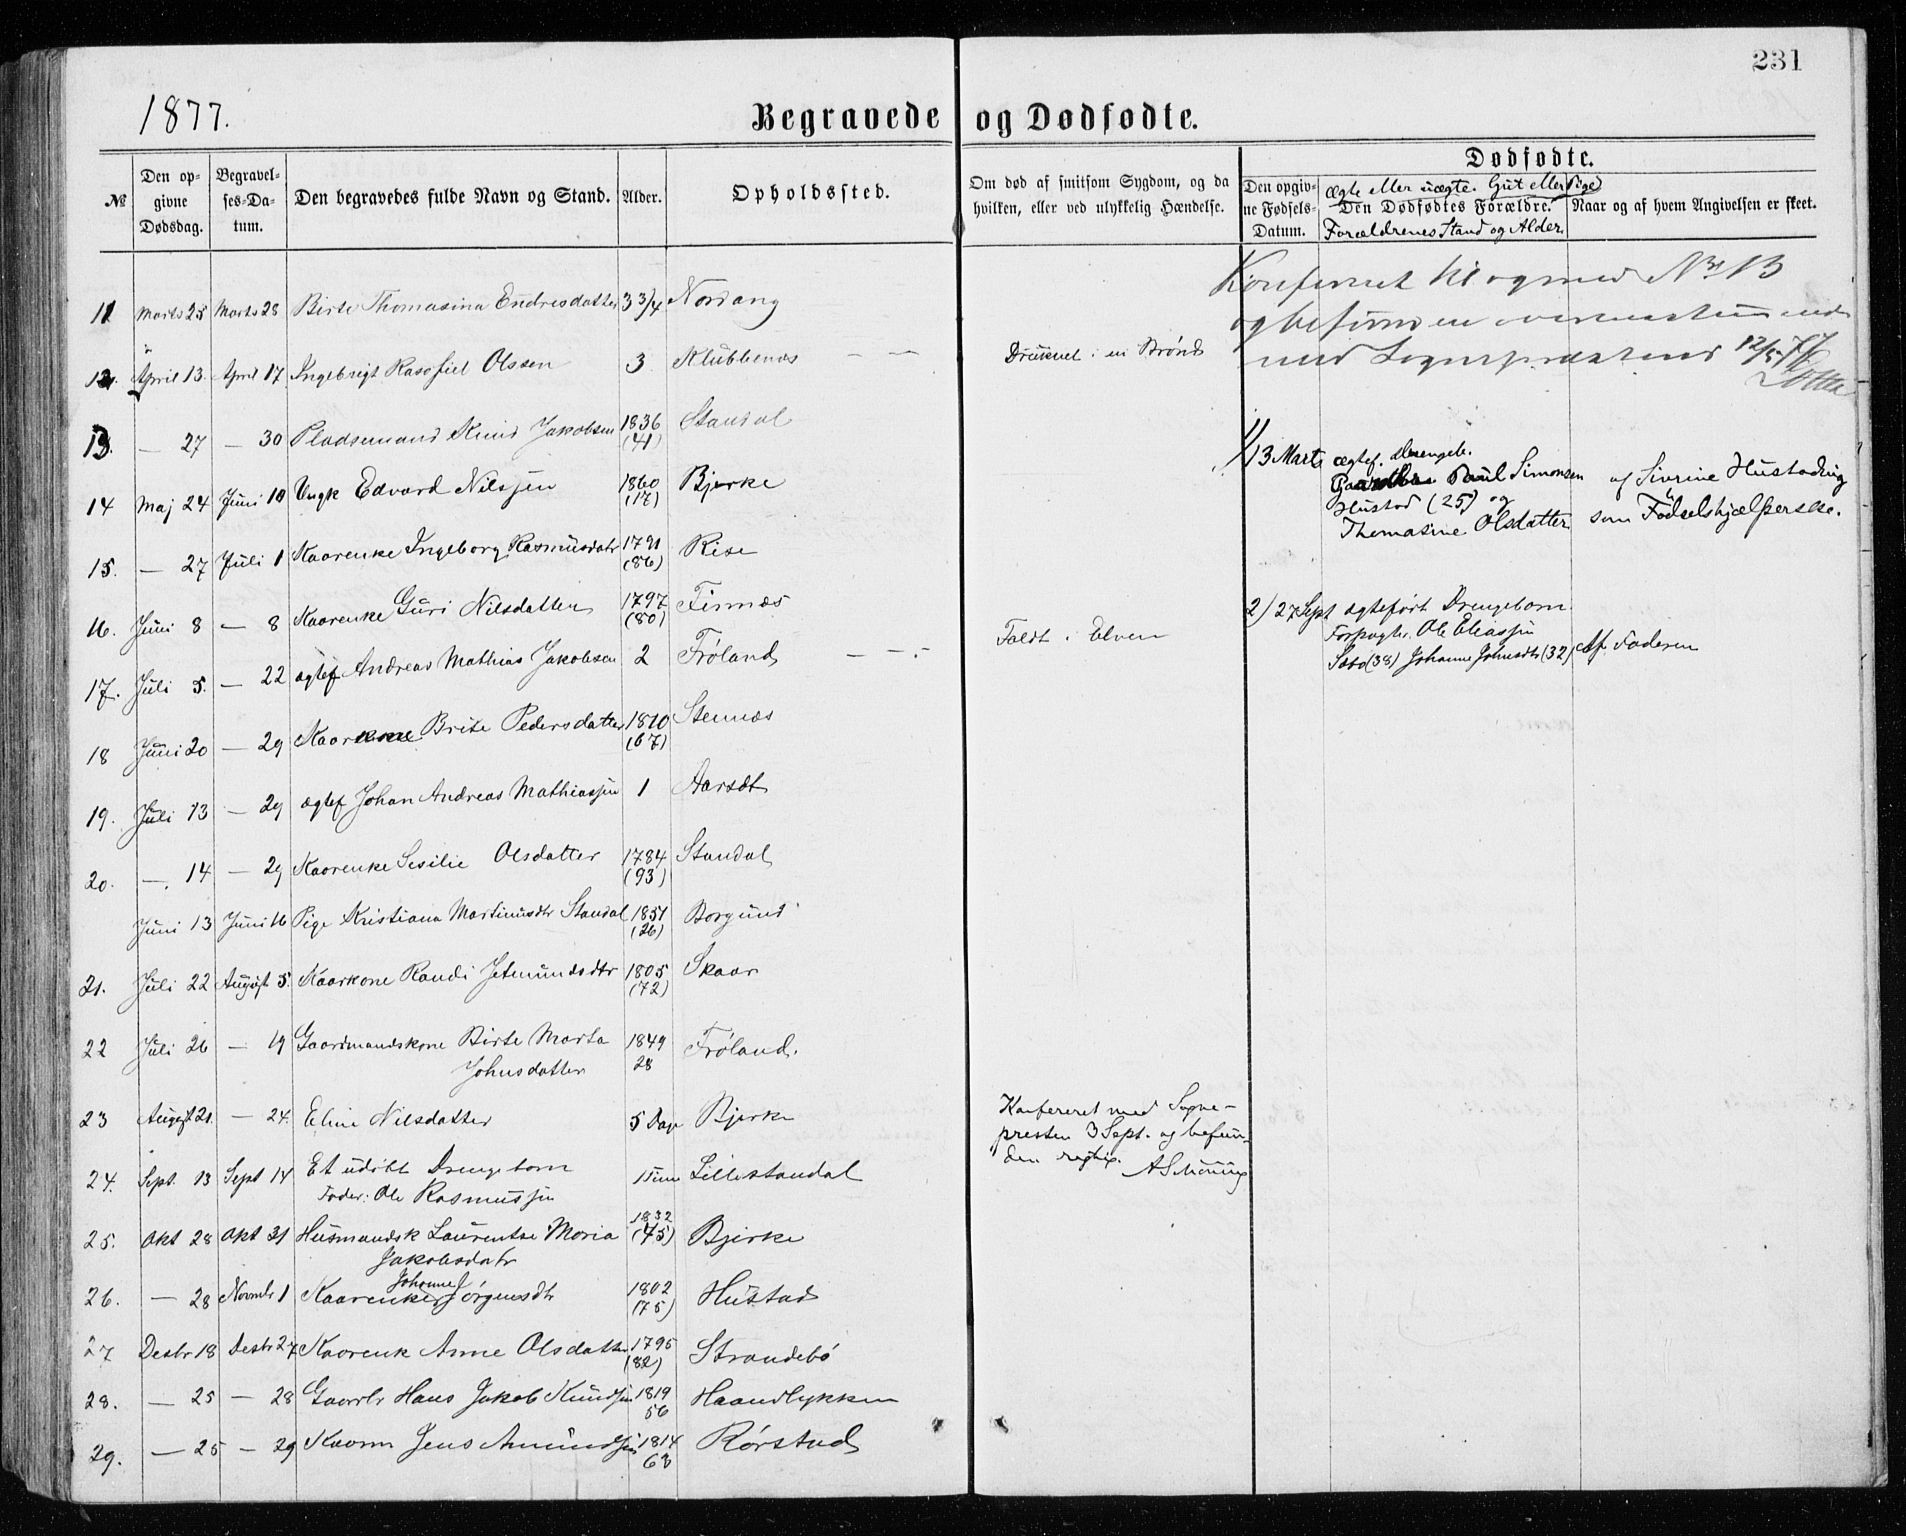 231
1877.
Begravede og Dødfødte.
Dødfødte.
№ Den op-givne Dødsdag. Begravel-ses-Da-tum. Den begravedes fulde Navn og Stand. Alder. Opholdssted. Om død af smitsom Sygdom, og da hvilken, eller ved ulykkelig Hændelse. Den opgiv-ne Fødsels-Datum. ægte eller uægte. Gut eller Pige Den Dødfødtes Forældre. Forældrenes Stand og Alder. Naar og af hvem Angivelsen er skeet.
11 Marts 25 Marts 28 Birte Thomasina Endresdatter 3 3/4 Norang
Konfereret til og med No 13
og befunden overensstemmende
med Sognepræstens 12/5 77
12. April 13. April 17 Ingebrigt Olsen 3 Klubbenæs — — Druknet i en Brønd
13. — 27 — 30 Pladsemand Knud Jakobsen 1836 (41) Standal
1/ 13 Marts ægtef. Drengeb.
Paul Simonsen
Hustad (25) og
Thomasine Olsdatter
af Sivrine Hustadeng
som Fødselshjælperske.
14 Maj 24 Juni 10 Ungk Edvard Nilssen 1860 (17) Bjerke
15. — 27 Juli 1 Kaarenke Ingeborg Rasmusdatr 1791 (86) Rise
16. Juni 8 — 8 Kaarenke Guri Nilsdatter 1797 (80) Finnæs
2/ 27 Sept ægteført Drengebarn
Forpagter. Ole Eliassen
Sæbø (38) Johanne Johnsdtr (32) Af Faderen
17. Juli 5. — 22 ægtef Andreas Mathias Jakobsen 2 Frøland — — Faldt i Elven
18 Juni 20 — 29 Kaarkone Brite Pedersdatter 1810 (67) Stennæs
19. Juli 13 — 29 ægtef Johan Andreas Mathiassen 1 Aarsæt
20. — 14 — 29 Kaarenke Sesilie Olsdatter 1784 (93) Standal
Juni 13 Juni 16 Pige Kristiana Martinusdtr Standal 1851 (26) Borgund
21. Juli 22 August 5. Kaarkone Randi Jetmundsdtr 1805 (72) Skaar
22 Juli 26 — 19 Gaardmandskone Birte Marta Johnsdatter 1849 28 Frøland.
23 August 21. — 24. Eline Nilsdatter 5 Dage Bjerke
Konfereret med Sogne-
presten 3 Sept. og befun-
den rigtig.
24. Sept. 13 Sept 14 Et udøbt Drengebarn
Fader: Ole Rasmussen 1 Time Lillestandal
25. Okt 28 Okt 31 Husmandsk Laurentse Maria Jakobsdatr 1832 (45) Bjerke
26. — 28 Novmbr 1 Kaarenke Johanne Jørgensdtr 1802 (75) Hustad
27 Desbr 18 Desbr 27 Kaarenk Anne Olsdatter 1795 (82) Strandebø
28. — 25 — 28 Gaardbr Hans Jakob Knudsen 1819 56 Haandlykken
29. — 25 — 29 Kaarm Jens Amundsen 1814 63 Rørstad